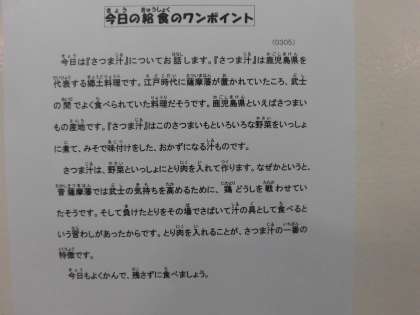 今日の給食のワンポイント
(0305)
今日は『さつま汁』についてお話します。『さつま汁』は鹿児島県を
代表する郷土料理です。江戸時代に薩摩藩が置かれていたころ、武士
の間でよく食べられていた料理だそうです。鹿児島県といえばさつまい
もの産地です。『さつま汁』はこのさつまいもといろいろな野菜をいっしょ
に煮て、みそで味付けをした、おかずになる汁ものです。
さつま汁は、野菜といっしょにとり肉を入れて作ります。なぜかというと、
昔薩摩藩では武士の気持ちを高めるために、鶏どうしを戦わせてい
たそうです。そして負けたとりをその場でさばいて汁の具として食べると
いう習わしがあったからです。とり肉を入れることが、さつま汁の一番の
特徴です。
今日もよくかんで、残さずに食べましょう。